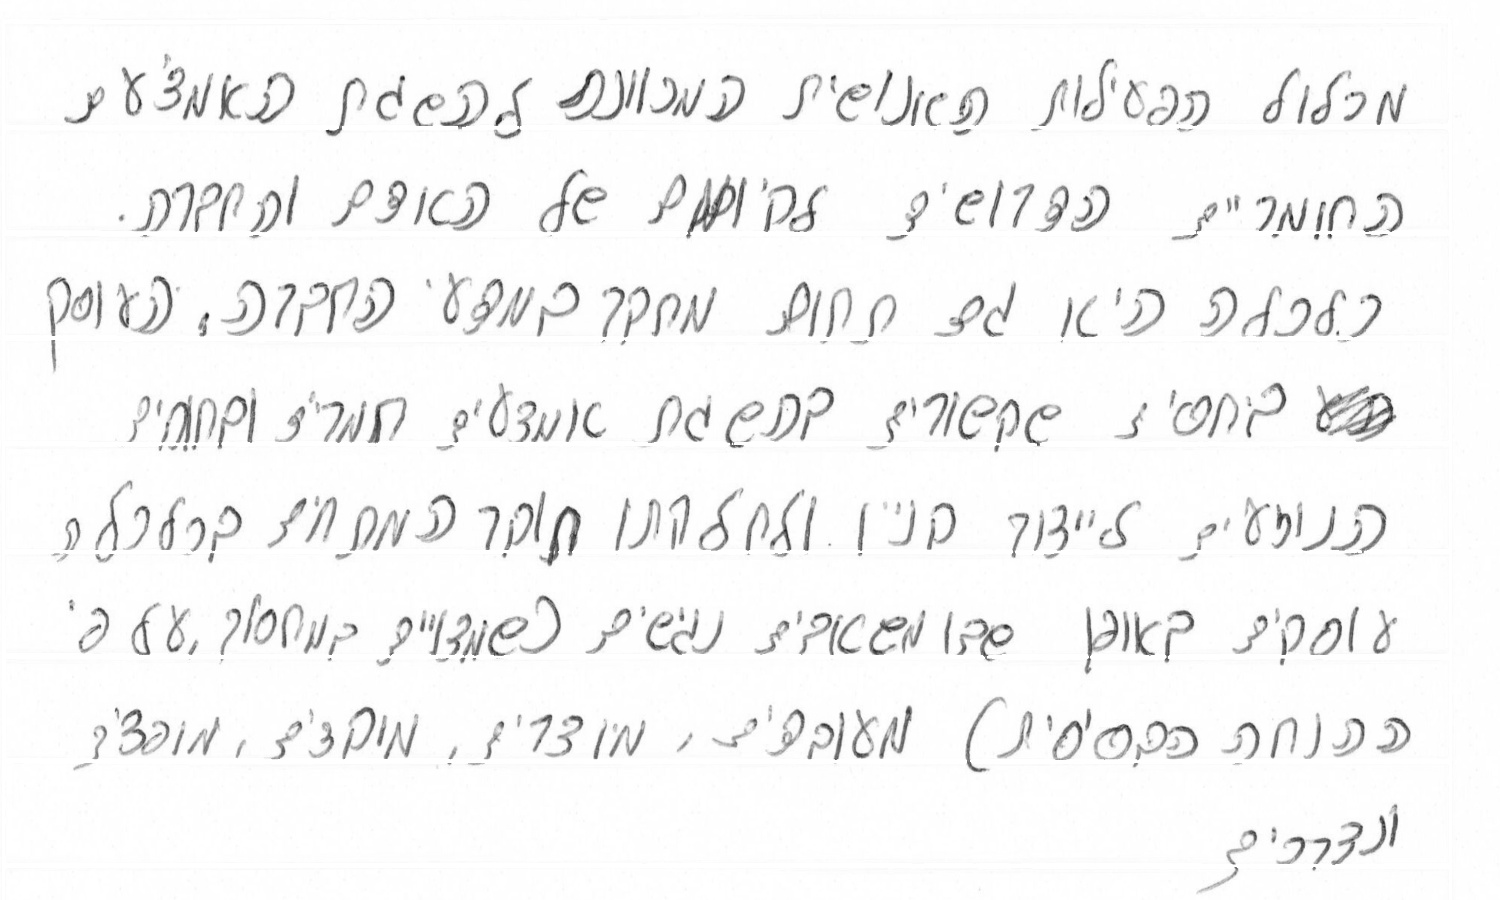 מכלול הפעילות האנושית המכוונת להשגת האמצעים
החומריים הדרושים לקיומם של האדם והחברה.
כלכלה היא גם תחום מחקר במדעי החברה, העוסק
ביחסים שקשורים בהשגת אמצעים חומרים ובחוקים
הנוגעים לייצור קניין ולחלוקתו חוקר המתחים בכלכלה
עוסקים באופן שבו משאבים נגישים (כשמצויים במחסור, על פי
ההנחה הבסיסית) מעובדים, מיוצרים, מוקצים, מופצים
ונצרכים